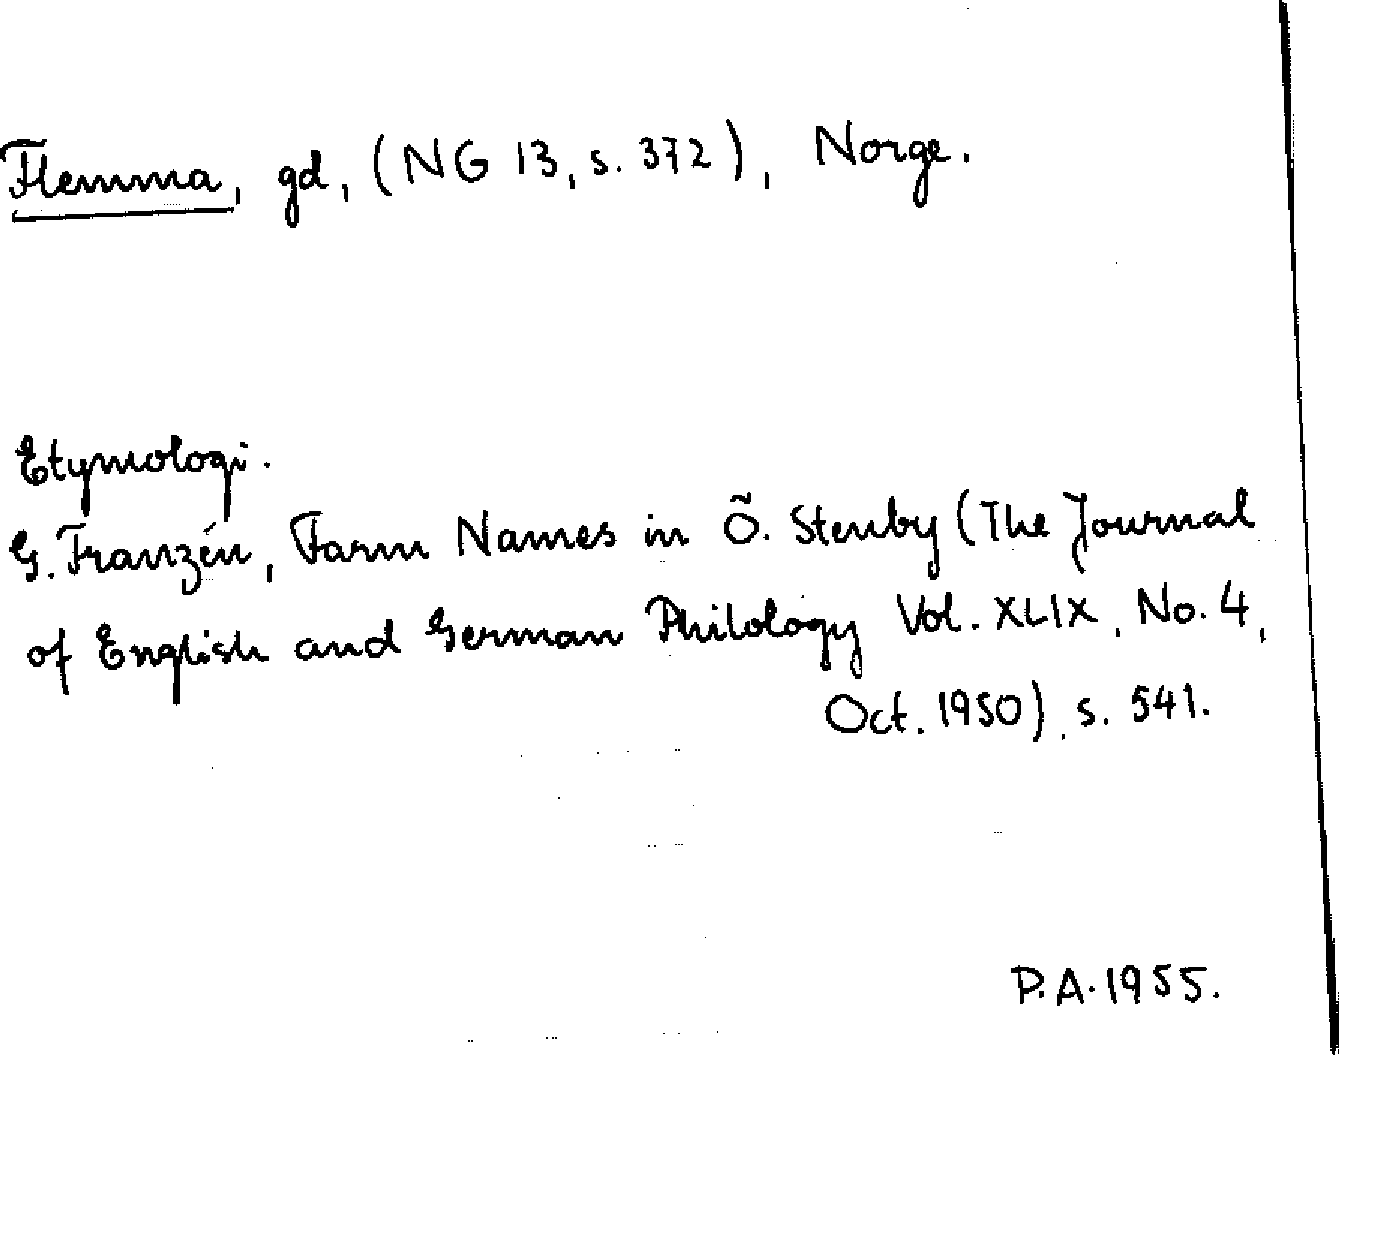 Flemma, gd, (NG 13, s. 372), Norge.
Etymologi.
G. Franzén, Farm Names in Ö. Stenby (The Journal
of English and German Philology Vol. XLIX, No. 4,
Oct. 1950), s. 541.
P.A. 1955.